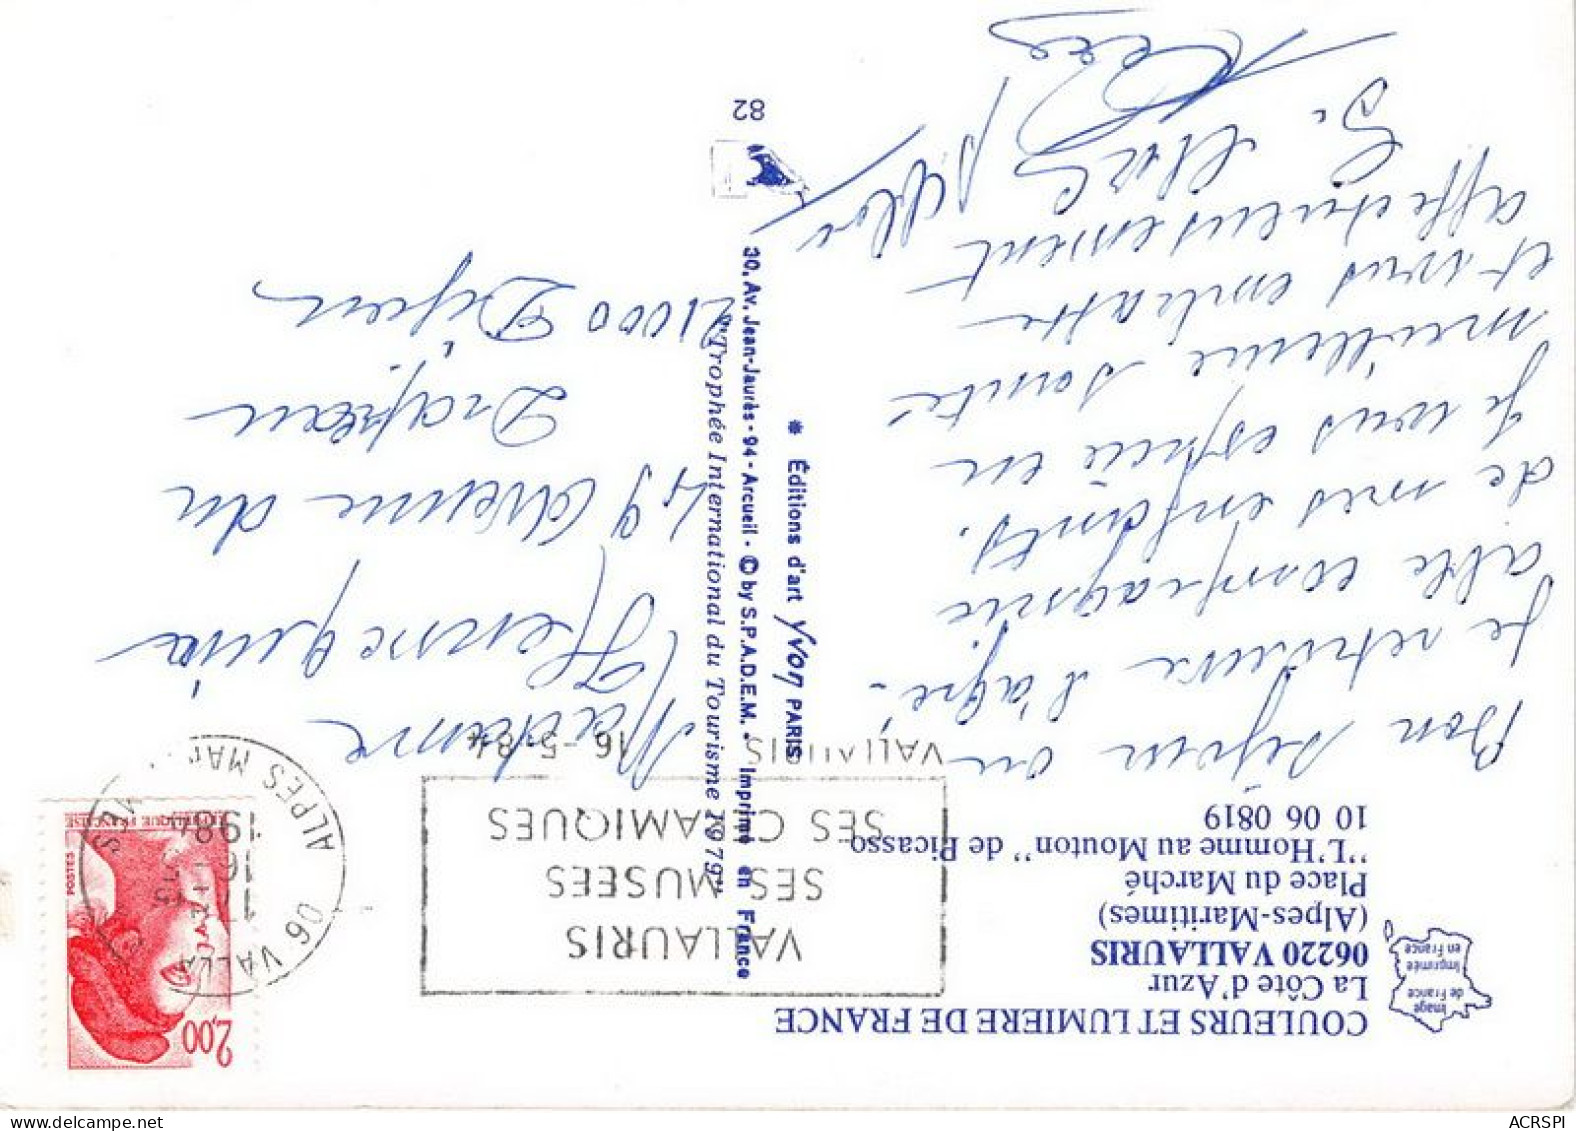 COULEURS ET LUMIERE DE FRANCE
La Côte d'Azur
06220 VALLAURIS
(Alpes-Maritimes)
Place du Marché
"L'Homme au Mouton" de Picasso
10 06 0819
Image
de France
imprimée
en France
Bon séjour ou
je retrouve l'agré-
able compagnie
de mes enfants.
Je vous espère en
meilleure santé
et vous embrasse
affectueusement
* Éditions d'art Yvon PARIS
30, Av. Jean-Jaurès - 94 - Arcueil - © by S.P.A.D.E.M. - Imprimé en France
"Trophée International du Tourisme 1979"
82
VALLAURIS
SES MUSEES
SES CERAMIQUES
VALLAURIS
16-5-84
06 VALLAURIS
ALPES MAR
17H
16-5
1984
2,00
POSTES
REPUBLIQUE FRANCAISE
Madame
49 Avenue du
Drapeau
21000 Dijon
ACRSPI